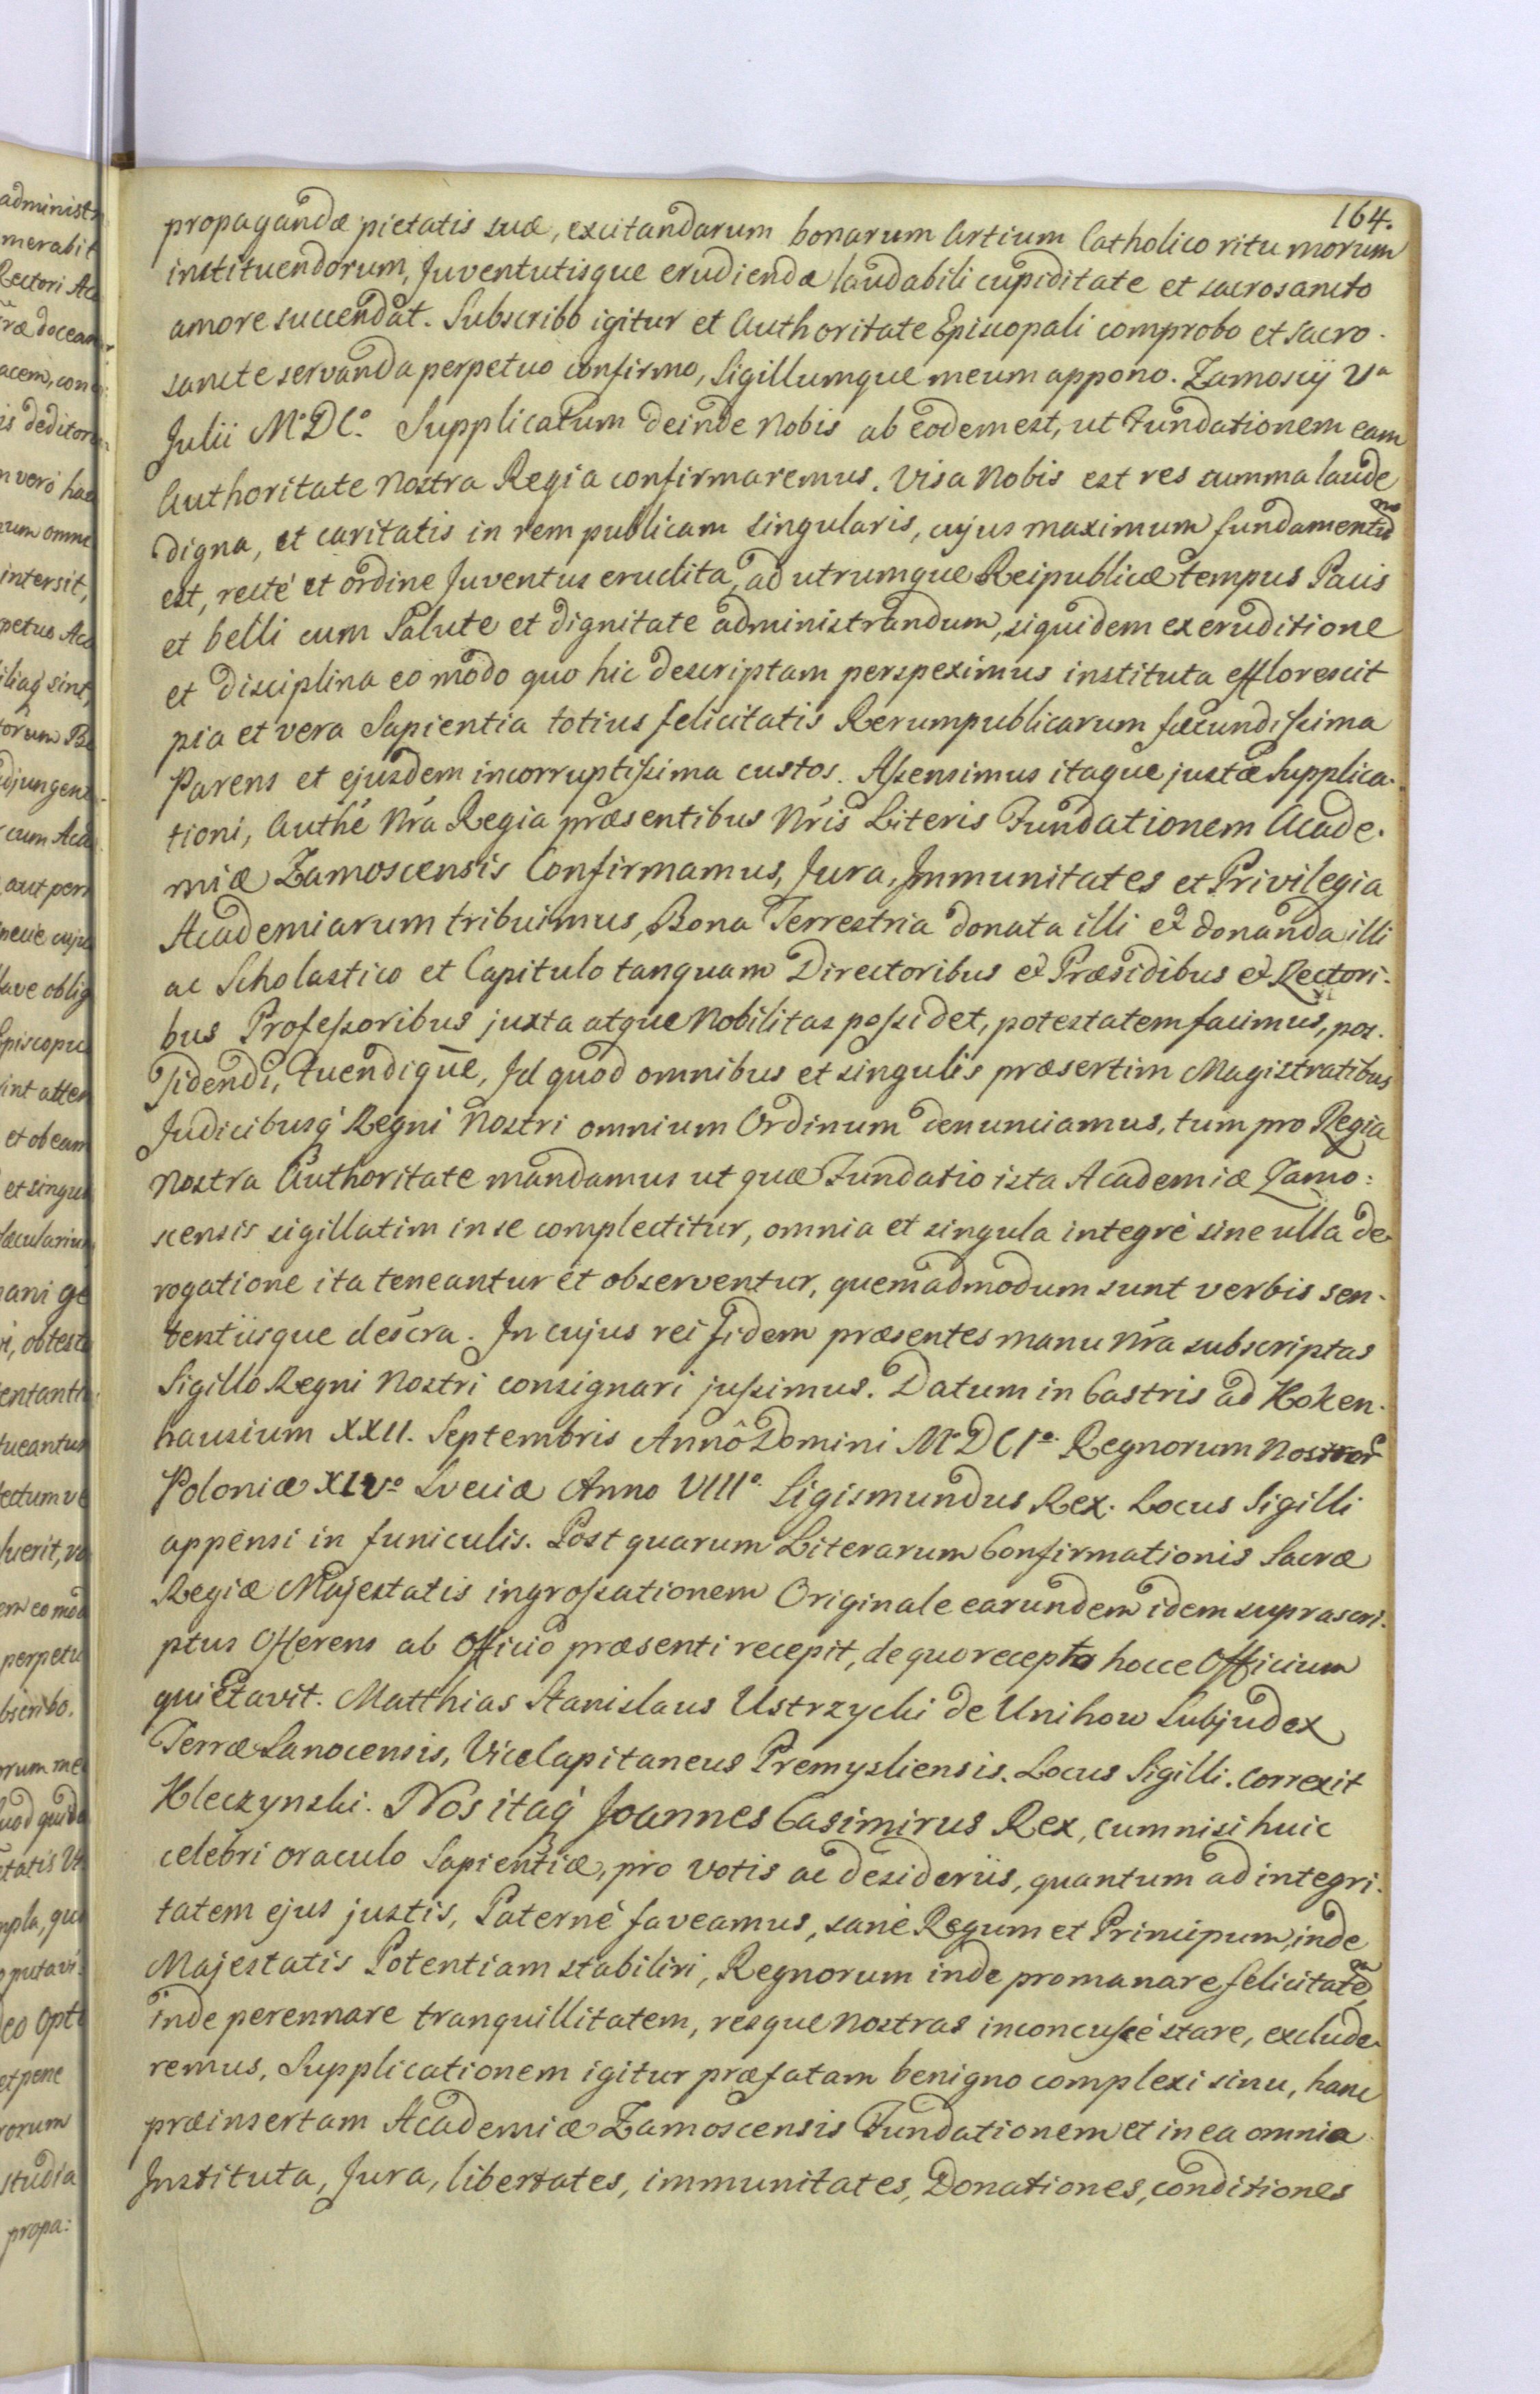 164.
propagandæ pietatis suæ, excitandarum bonarum Artium Catholico ritu morum
instituendorum, Juventutisque erudiendæ laudabili cupiditate et sacrosancto
amore succendat. Subscribo igitur et Authoritate Episcopali comprobo et sacro-
sancte servanda perpetuo confirmo, Sigillumque meum appono. Zamoscÿ Vª
Julii MºDCº. Supplicatum deinde Nobis ab eodem est, ut Fundationem eam
Authoritate Nostra Regia confirmaremus. Visa Nobis est res summa laude
digna, et caritatis in rem publicam singularis, cujus maximum fundamentum
est, recté et ordine Juventus erudita, ad utrumque Reipublicæ tempus Pacis
et belli cum Salute et dignitate administrandum, siquidem ex eruditione
et disciplina eo modo quo hic descriptam perspeximus instituta efflorescit
pia et vera Sapientia totius felicitatis Rerumpublicarum fœcundissima
Parens et ejusdem incorruptissima custos. Assensimus itaque justæ Supplica-
tioni, Authé Nrá Regia præsentibus Nrís Literis Fundationem Acade-
miæ Zamoscensis Confirmamus, Jura, Immunitates et Privilegia
Academiarum tribuimus, Bona Terrestria donata illi et donanda illi
ac Scholastico et Capitulo tanquam Directoribus et Præsidibus et Rectori-
bus Professoribus juxta atque Nobilitas possidet, potestatem facimus, pos-
sidendi, tuendique, Id quod omnibus et singulis præsertim Magistratibus
Judicibusq́ Regni Nostri omnium Ordinum denunciamus, tum pro Regia
Nostra Authoritate mandamus ut quæ Fundatio ista Academiæ Zamo:
scensis sigillatim in se complectitur, omnia et singula integré sine ulla de-
rogatione ita teneantur et observentur, quemadmodum sunt verbis sen-
tentiisque descra. In cujus rei fidem præsentes manu Nrá subscriptas
Sigillo Regni Nostri consignari jussimus. Datum in Castris ad Koken-
hausium XXII. Septembris Annô Domini MºDCIº. Regnorum Nostror
Poloniæ XIVº Sveciæ Anno VIIIº. Sigismundus Rex. Locus Sigilli
appensi in funiculis. Post quarum Literarum Confirmationis Sacræ
Regiæ Majestatis ingrossationem Originale earundem idem suprascri-
ptus Offerens ab Officio præsenti recepit, de quo recepto hocce Officium
quietavit. Matthias Stanislaus Ustrzycki de Unihow Subjudex
Terræ Sanocensis, ViceCapitaneus Premysliensis. Locus Sigilli. Correxit
Kleczynski. Nos itaq́ Joannes Casimirus Rex, cum nisi huic
celebri oraculo Sapientiæ, pro votis ac desideriis, quantum ad integri-
tatem ejus justis, Paterné faveamus, sané Regum et Principum, inde
Majestatis Potentiam stabiliri, Regnorum inde promanare felicitatem,
inde perennare tranquillitatem, resque Nostras inconcussé stare, exclude-
remus, Supplicationem igitur præfatam benigno complexi sinu, hanc
præinsertam Academiæ Zamoscensis Fundationem et in ea omnia
Instituta, Jura, libertates, immunitates, Donationes, conditiones